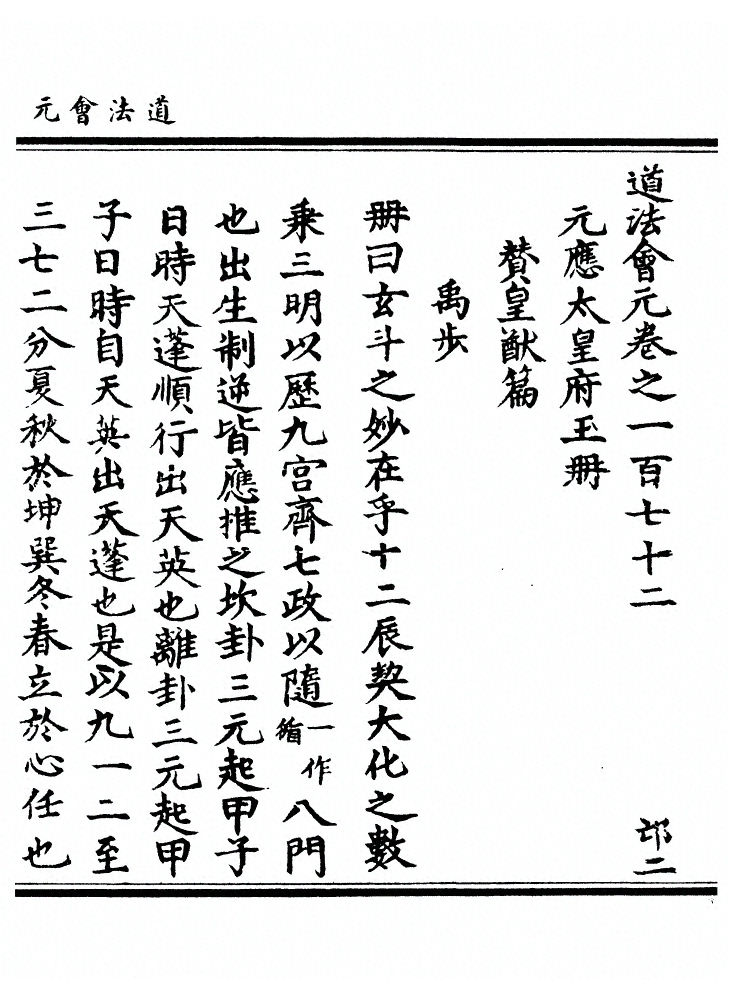 道法會元
道法會元卷之一百七十二 邙二
元應太皇府玉冊
贊皇猷篇
禹步
冊曰玄斗之妙在乎十二辰契大化之數
乘三明以歷九宮齊七政以隨一作循八門
也出生制逆皆應推之坎卦三元起甲子
日時天蓬順行出天英也離卦三元起甲
子日時自天英出天蓬也是以九一二至
三七二分夏秋於坤巽冬春立於心任也